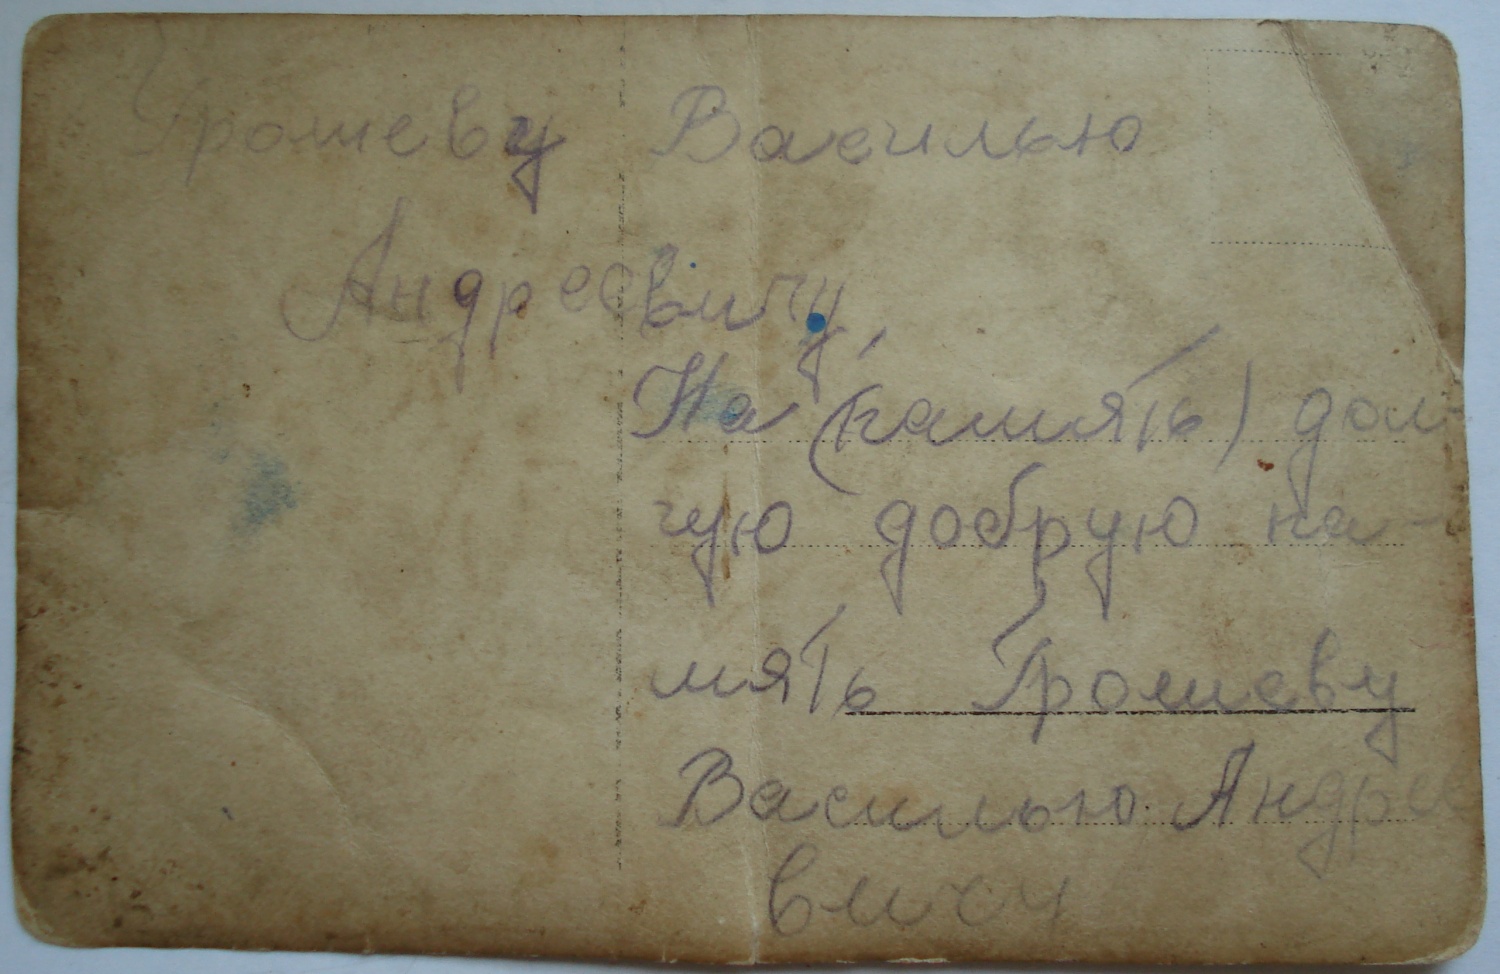 Грошеву Василью
Андреевичу,
На (память) дол-
гую добрую па-
мять Грошеву
Василью Андрее
вичу